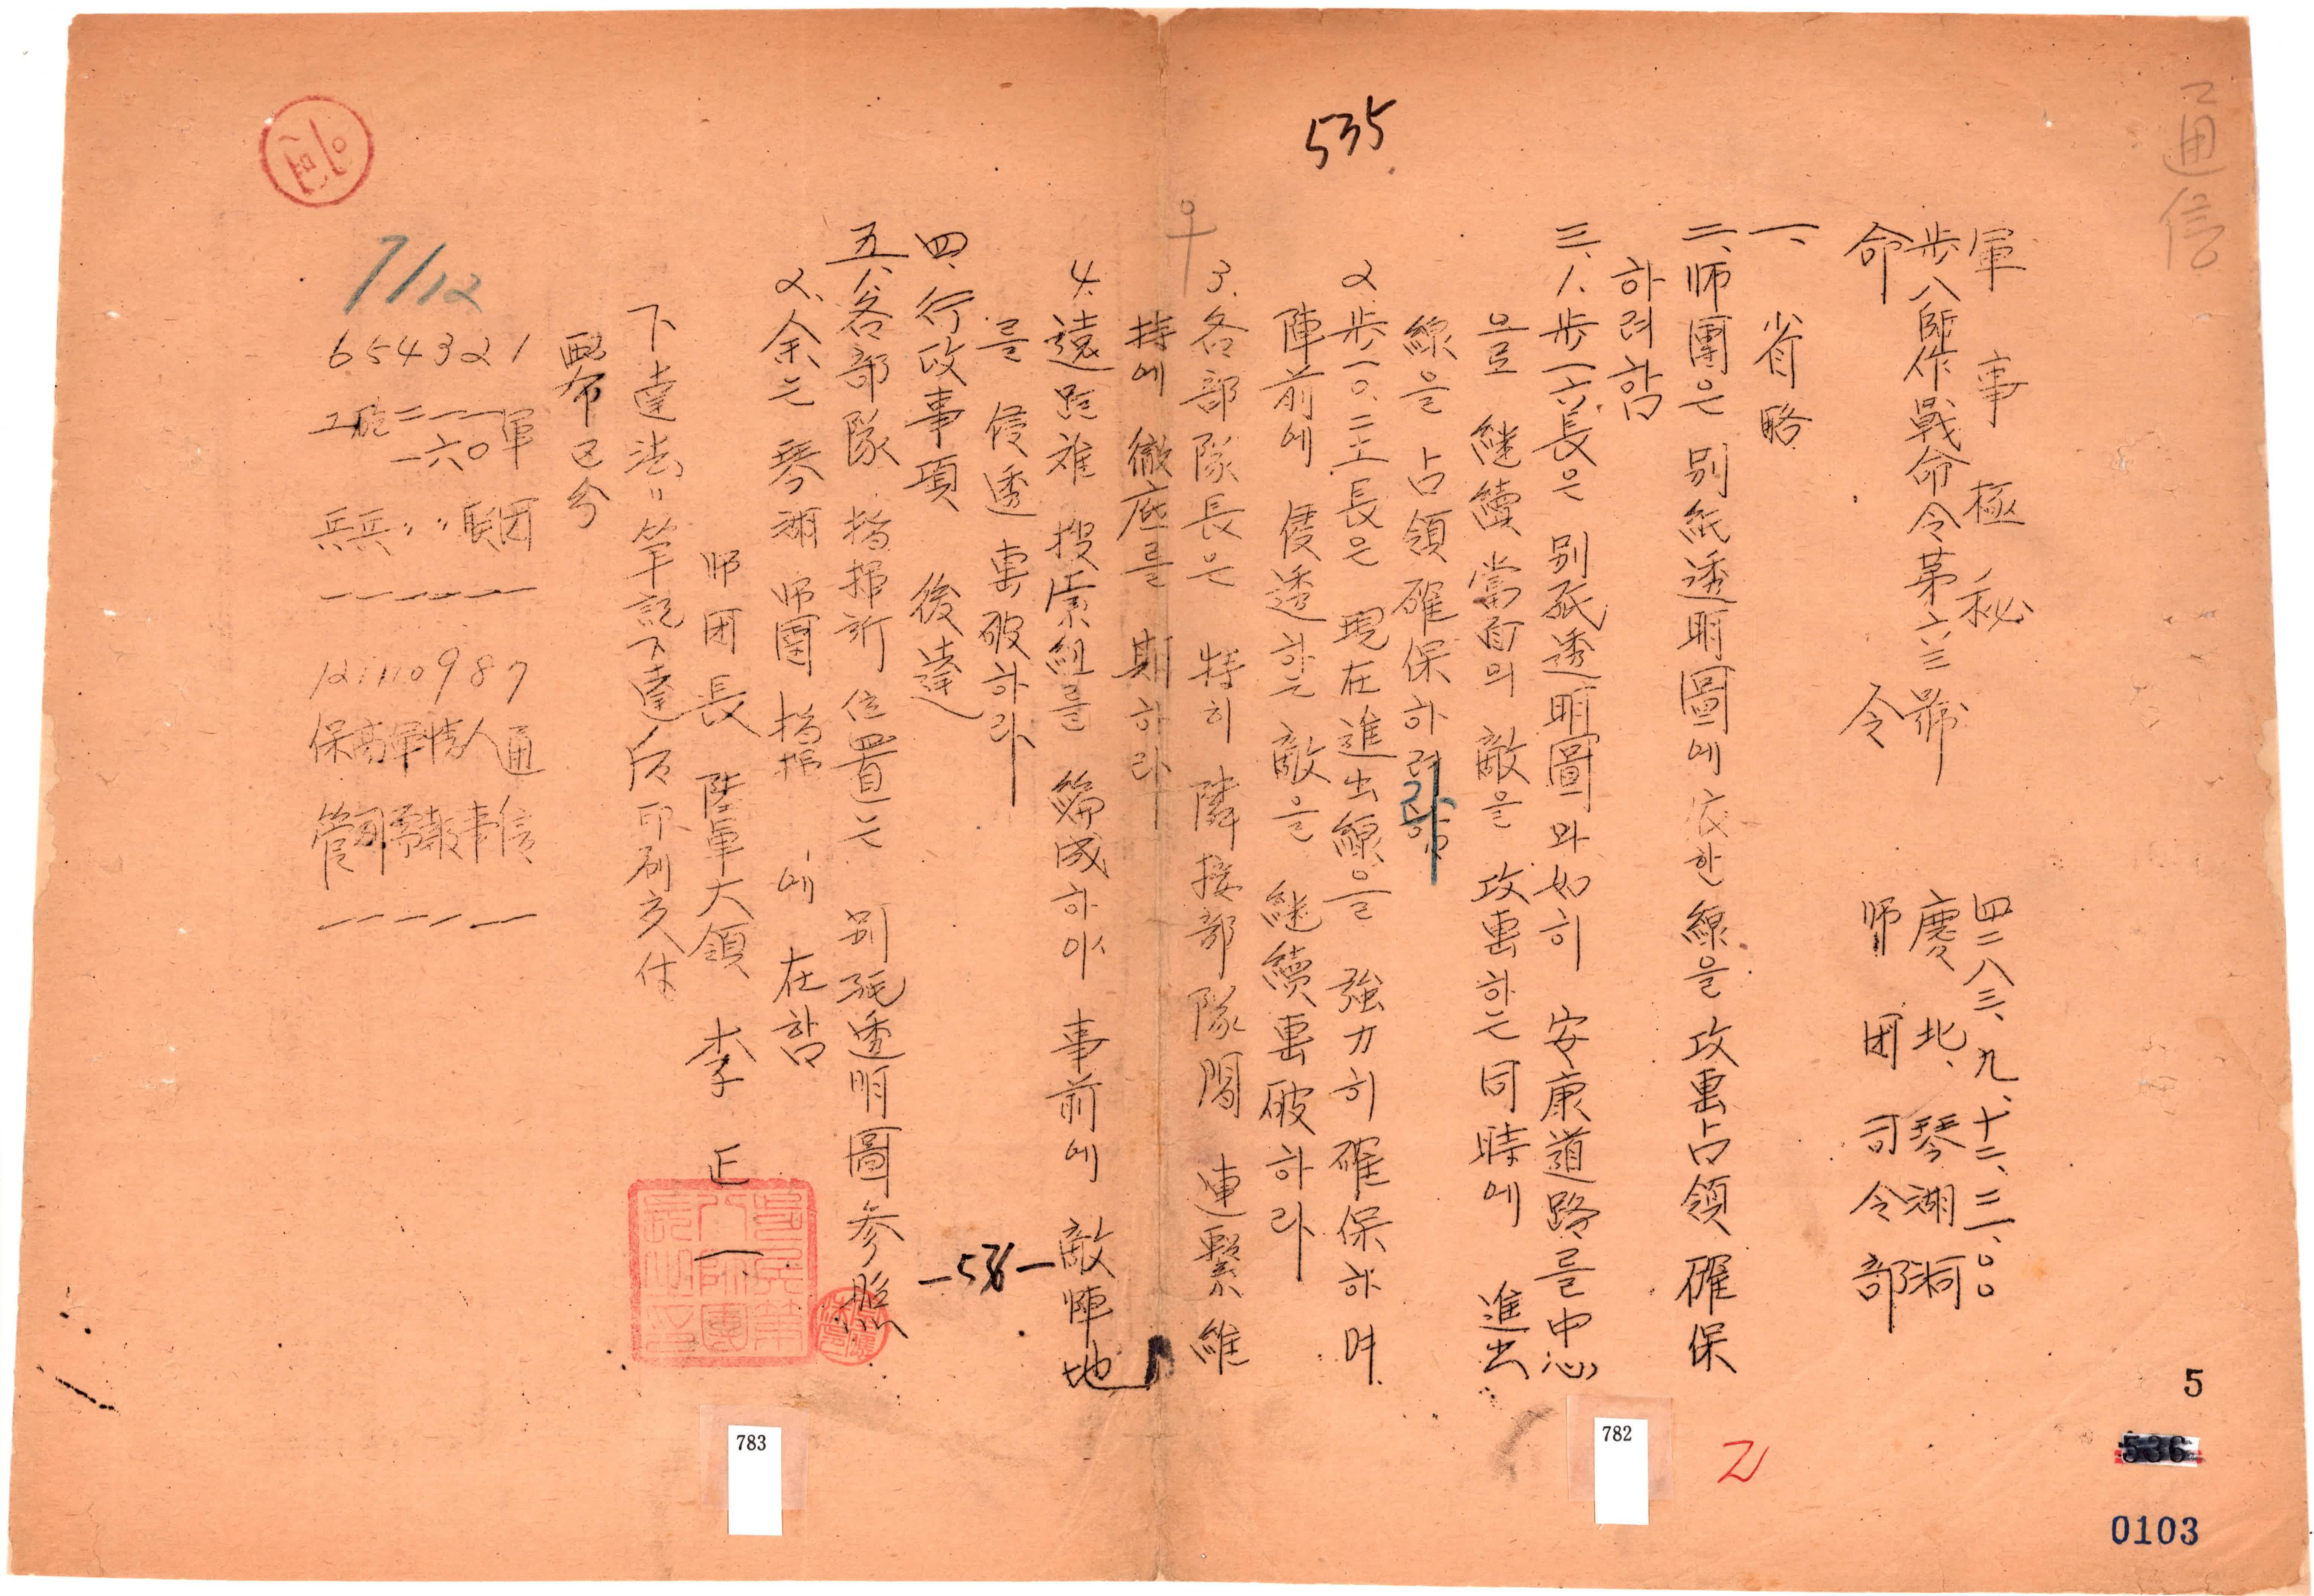 通信
535
軍事極秘
四二八三、九、十二、二一、〇〇
歩八師作戰命令第六三號
慶北、琴湖洞
命令
师团司令部
一、省略
二、师團은 別紙透明圖에 依한 線을 攻擊占領確保
하려함
三、1.歩一六長은 別紙透明圖와如히 安康道路를中心
으로 継續當面의 敵을 攻擊하는同時에 進出
線을 占領確保하라
2.歩一〇.二一長은 現在進出線을 強力히 確保하며
陣前에 侵透하는 敵을 継續擊破하라
우
3.各部隊長은 特히 隣接部隊間 連繫維
持에 徹底를 期하라
4.遠距離 搜索組를 編成하야 事前에 敵陣地
를 侵透 擊破하라
四、行政事項 後達
五、1.各部隊 指揮所 位置는 別紙透明圖參照
2.余는 琴湖师團指揮所에 在함
师团長 陸軍大領 李正一
下達法〃筆記下達后印刷交付
配布区分
1 軍団 一
2 一〇聯 一
3 一六〃 一
4 二一〃 一
5 砲兵 一
6 工兵 一
7 通信 一
8 人事 一
9 情報 一
10 軍需 一
11 高射 一
12 保管 一
7/12
-536-
782
783
5
536
0103